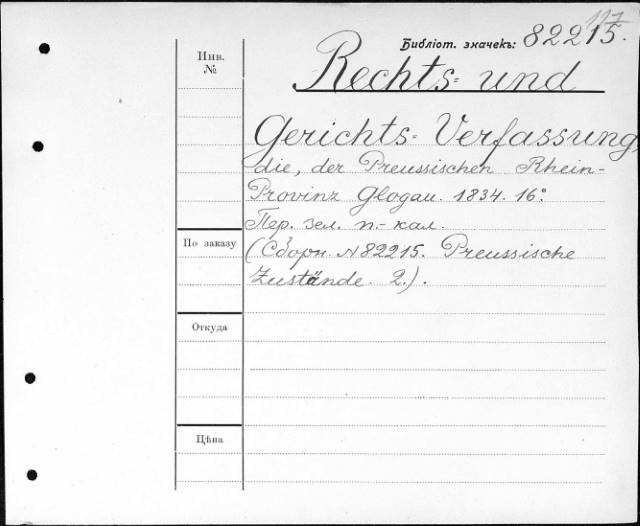 117
Библіот. значекъ: 82215.
Инв.
№
Rechts= und
Gerichts= Verfassung,
die, der Preussischen Rhein-
Provinz Glogau. 1834. 16°.
Пер. зел. п.- кал.
По заказу
(Сборн. N 82215. Preussische
Zustände. 2.).
Откуда
Цѣна